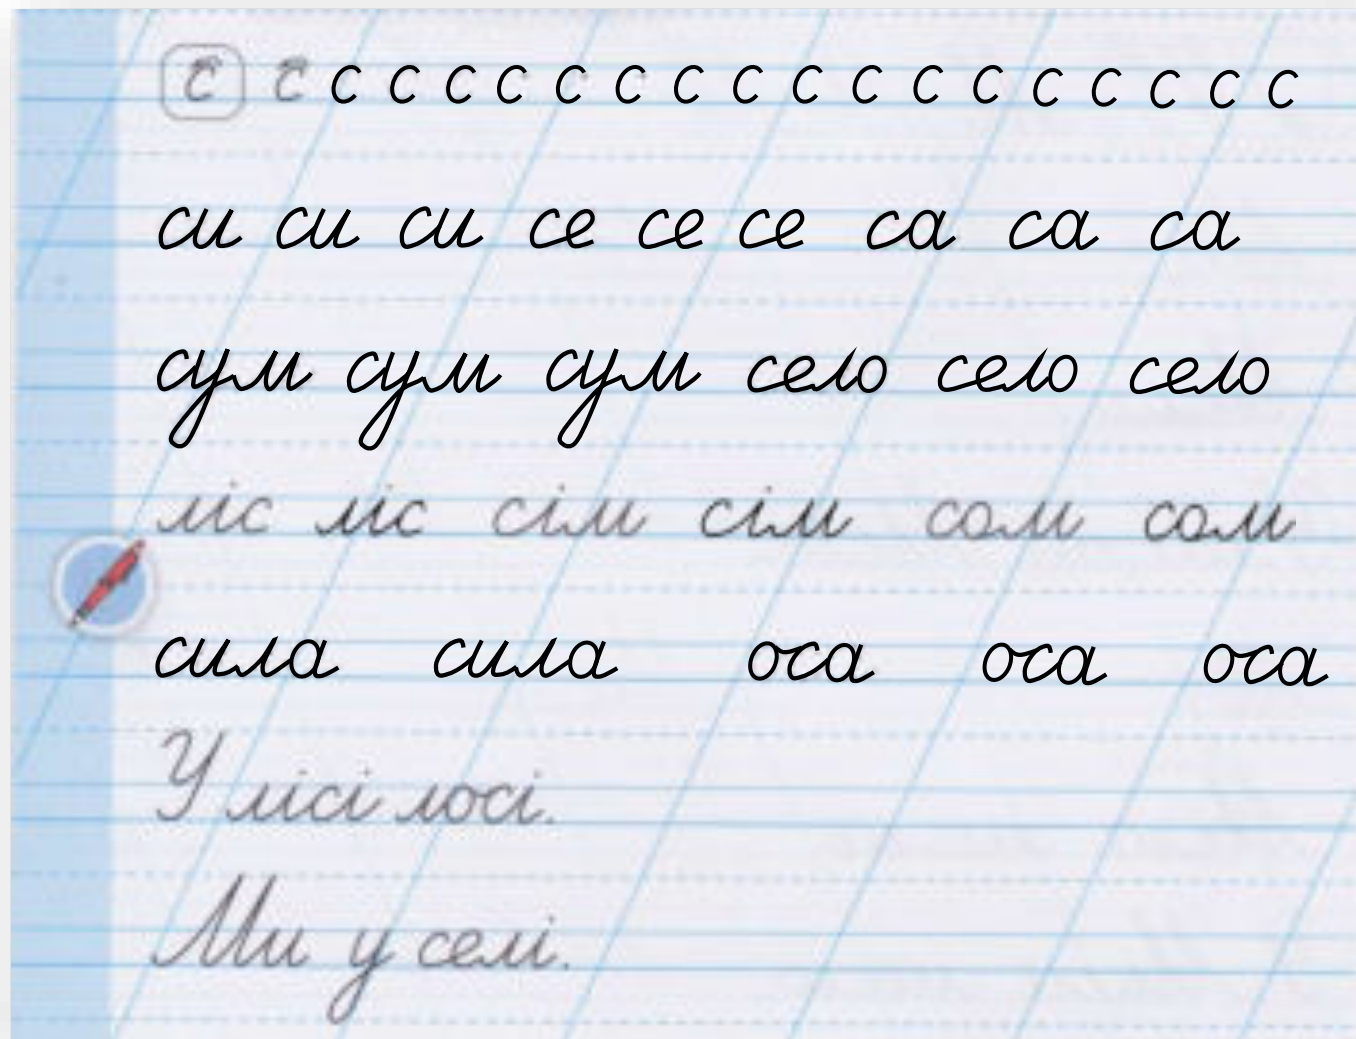 с с с с с с с с с с с с с с с с с с с
си си си се се се са са са
сум сум сум село село село
ліс ліс сім сім сом сом
сила сила оса оса оса
У лісі лосі.
Ми у селі.